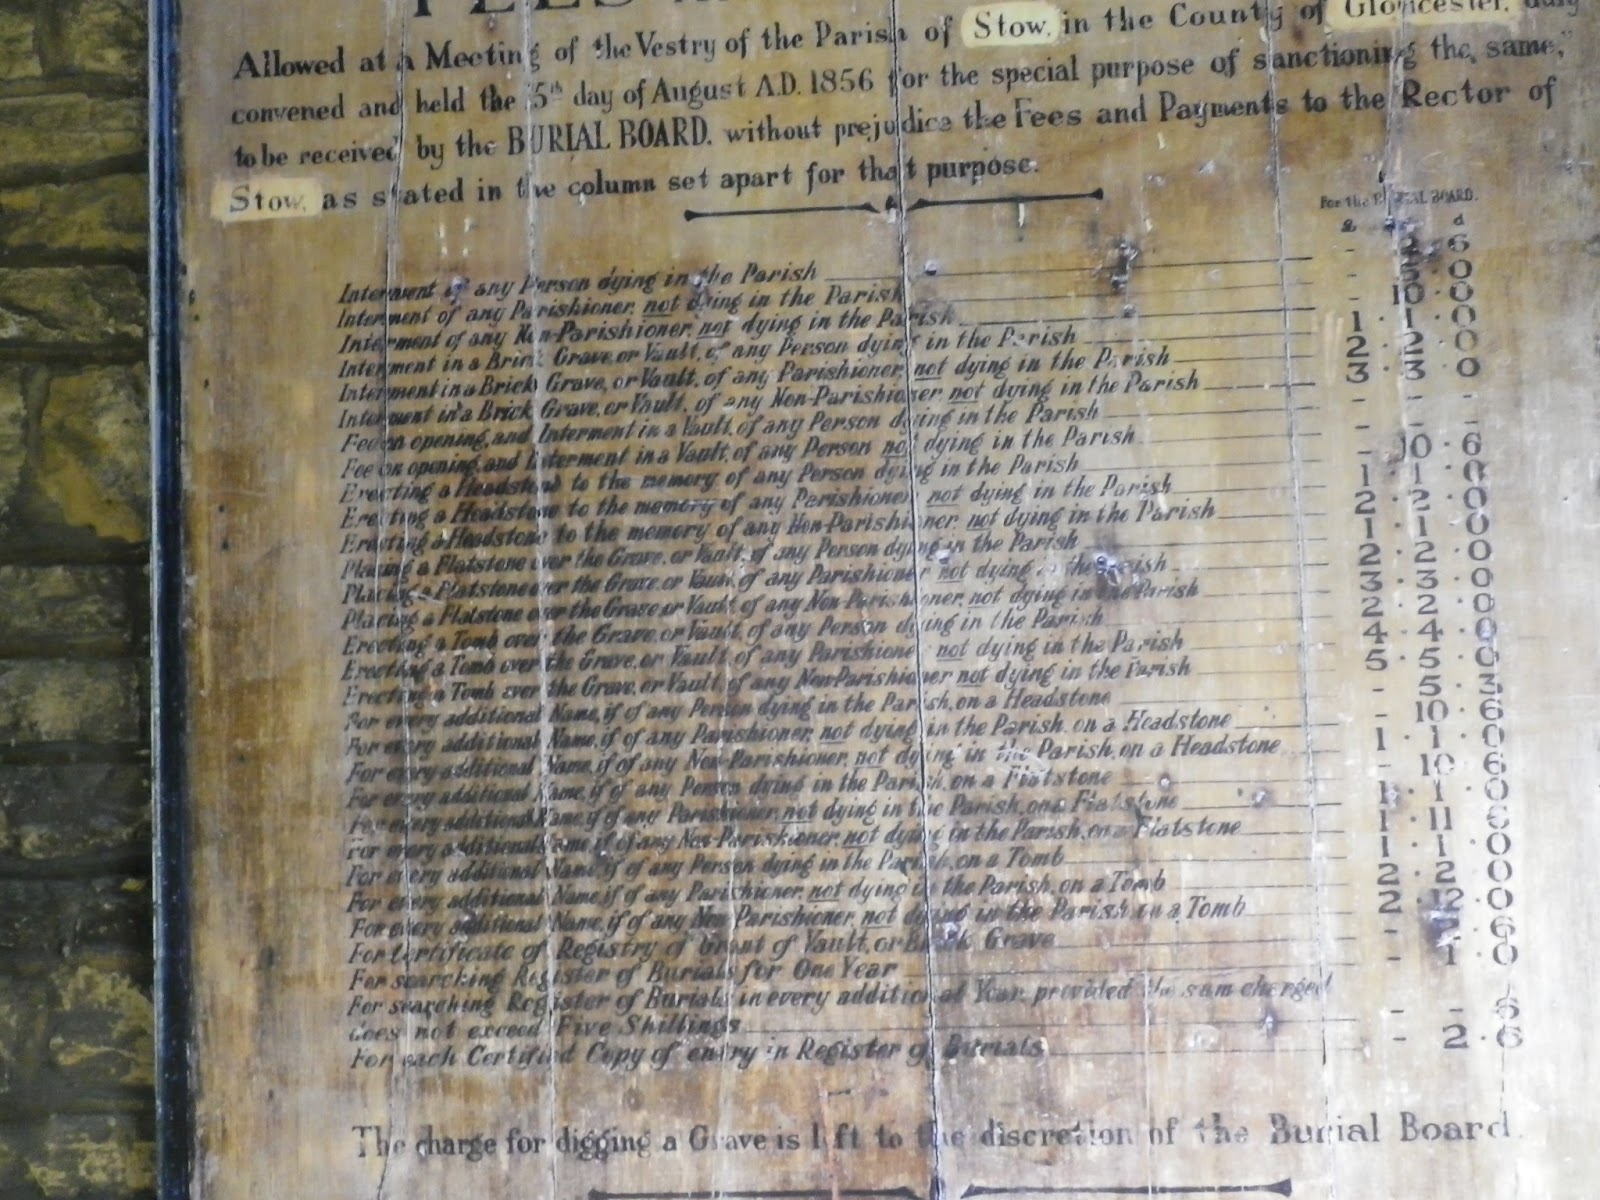 Allowed at a Meeting of the Vestry of the Parish of Stow, in the County of Gloucester, duly
convened and held the 5th day of August A.D. 1856 for the special purpose of sanctioning the same,"
to be received by the BURIAL BOARD, without prejudice the Fees and Payments to the Rector of
Stow, as stated in the column set apart for that purpose.
For the BURIAL BOARD.
£ d
Interment of any Person dying in the Parish - 6
Interment of any Parishioner, not dying in the Parish - 5 . 0
Interment of any Non-Parishioner, not dying in the Parish - 10 . 0
Interment in a Brick Grave, or Vault, of any Person dying in the Parish 1 . 1 . 0
Interment in a Brick Grave, or Vault, of any Parishioner, not dying in the Parish 2 . 2 . 0
Interment in a Brick Grave, or Vault, of any Non-Parishioner, not dying in the Parish 3 . 3 . 0
Fee on opening, and Interment in a Vault, of any Person dying in the Parish - - -
Fee on opening, and Interment in a Vault, of any Person not dying in the Parish - - -
Erecting a Headstone to the memory of any Person dying in the Parish - 10 . 6
Erecting a Headstone to the memory of any Parishioner, not dying in the Parish 1 . 1 . 0
Erecting a Headstone to the memory of any Non-Parishioner, not dying in the Parish 2 . 2 . 0
Placing a Flatstone over the Grave, or Vault, of any Person dying in the Parish 1 . 1 . 0
Placing a Flatstone over the Grave, or Vault, of any Parishioner not dying in the Parish 2 . 2 . 0
Placing a Flatstone over the Grave or Vault, of any Non-Parishioner, not dying in the Parish 3 . 3 . 0
Erecting a Tomb over the Grave, or Vault, of any Person dying in the Parish 2 . 2 . 0
Erecting a Tomb over the Grave, or Vault, of any Parishioner not dying in the Parish 4 . 4 . 0
Erecting a Tomb over the Grave, or Vault, of any Non-Parishioner not dying in the Parish 5 . 5 . 0
For every additional Name, if of any Person dying in the Parish, on a Headstone - 5 . 3
For every additional Name, if of any Parishioner, not dying in the Parish, on a Headstone - 10 . 6
For every additional Name, if of any Non-Parishioner, not dying in the Parish, on a Headstone 1 . 1 . 0
For every additional Name, if of any Person dying in the Parish, on a Flatstone - 10 . 6
For every additional Name, if of any Parishioner, not dying in the Parish, on a Flatstone 1 . 1 . 0
For every additional Name, if of any Non-Parishioner, not dying in the Parish, on a Flatstone 1 . 11 . 6
For every additional Name, if of any Person dying in the Parish, on a Tomb 1 . 1 . 0
For every additional Name, if of any Parishioner, not dying in the Parish, on a Tomb 2 . 2 . 0
For every additional Name, if of any Non-Parishioner, not dying in the Parish on a Tomb 2 . 12 . 0
For Certificate of Registry of Grant of Vault, or Brick Grave - 6
For searching Register of Burials for One Year - 1 . 0
For searching Register of Burials in every additional Year, provided the sum charged
does not exceed Five Shillings - - 6
For each Certified Copy of entry in Register of Burials - 2 . 6
The charge for digging a Grave is left to the discretion of the Burial Board.